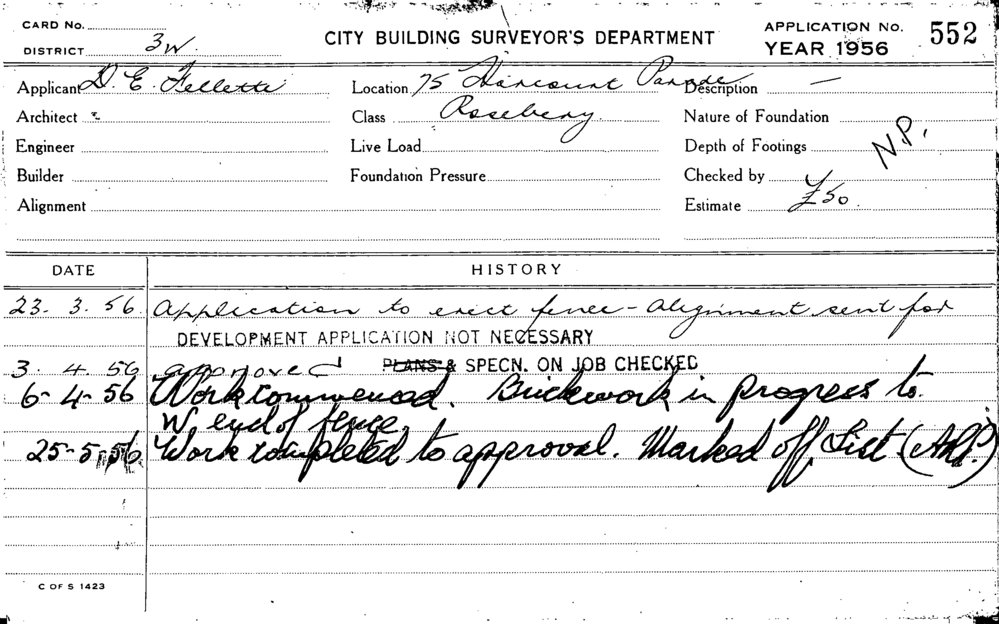 CARD No.
DISTRICT 3W.
CITY BUILDING SURVEYOR'S DEPARTMENT
APPLICATION No. 552
YEAR 1956
Applicant D. E. Gellette
Location 75 Harcourt Parade
Description —
Architect
Class Rosebery
Nature of Foundation
Engineer
Live Load
Depth of Footings
N.P.
Builder
Foundation Pressure
Checked by
Alignment
Estimate £50.
DATE HISTORY
23. 3. 56. Application to erect fence - alignment sent for
DEVELOPMENT APPLICATION NOT NECESSARY
3. 4. 56 approved PLANS & SPECN. ON JOB CHECKED
6-4-56 Work commenced. Brickwork in progress to
W. end of fence.
25-5-56 Work completed to approval. Marked off List
C OF S 1423